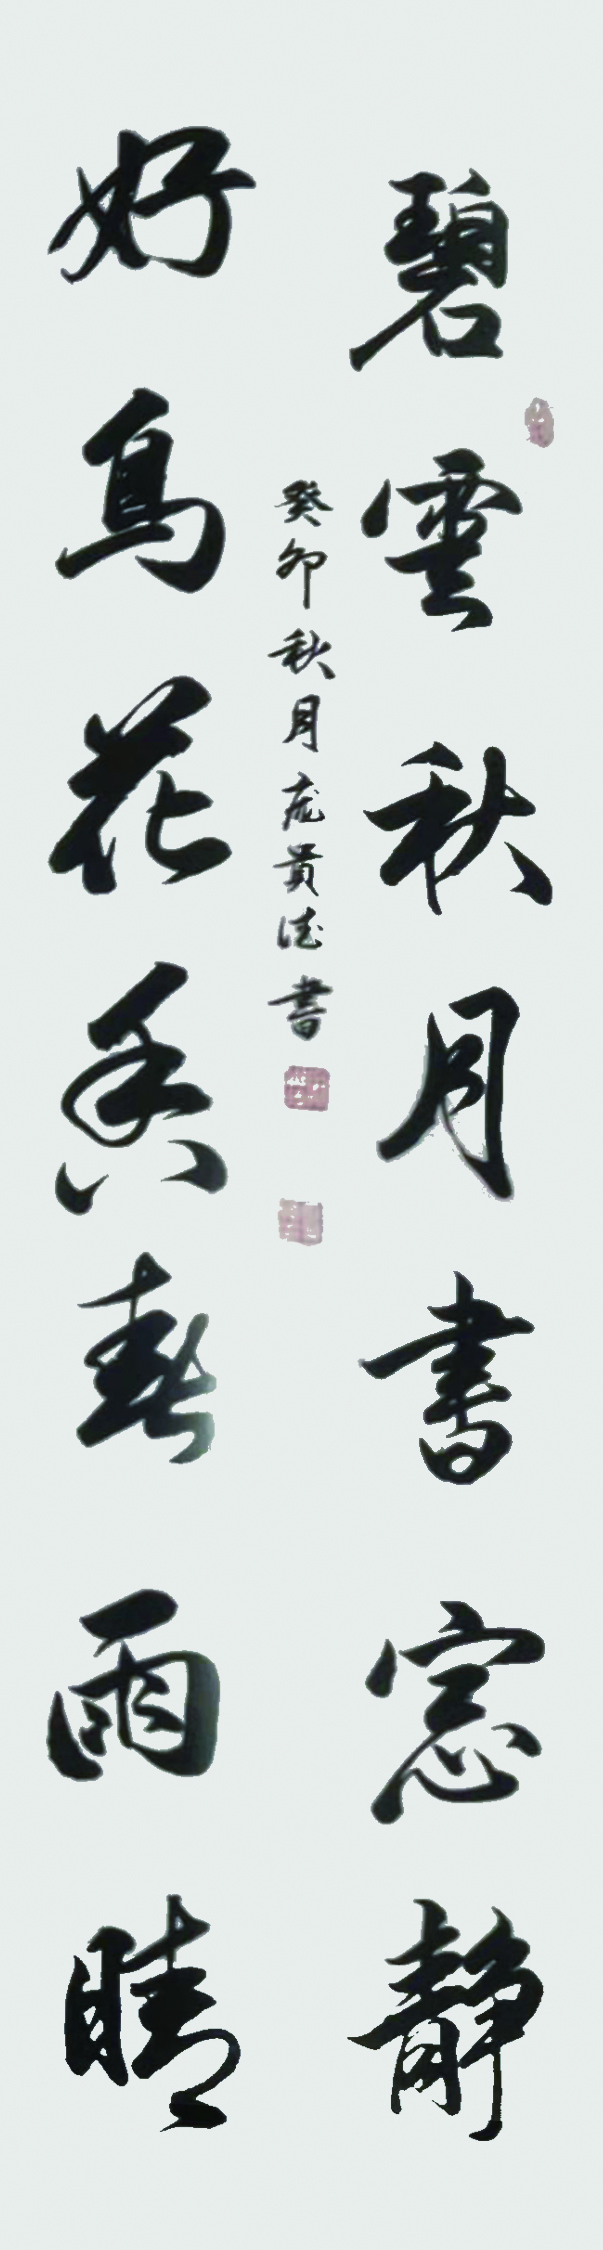 碧雲秋月書窓靜
好鳥花香春雨晴
癸卯秋月 貴法書